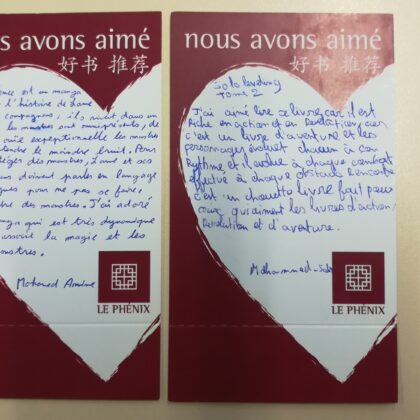 s avons aimé
好书 推荐
est un manga
l'histoire de
compagnons, ils
les monstres sont omniprésents, de
exceptionnelle les monstres
le moindre bruit. Pour
des monstres, et ses
doivent parler en langage
pour ne pas se faire
des monstres. J'ai adoré
qui est très dynamique
associé la magie et les
monstres.
Mohamed Amine
LE PHÉNIX
nous avons aimé
好书 推荐
Solo leveling
Tome 2
J'ai aimé lire ce livre car il est
riche en action et en
c'est un livre d'aventure et les
personnages évoluent chacun à son
rythme et évolue à chaque combat
effectué à chaque obstacle rencontré
c'est un chouette livre fait pour
ceux qui aiment les livres d'action
évolution et d'aventure.
Mohammed
LE PHÉNIX